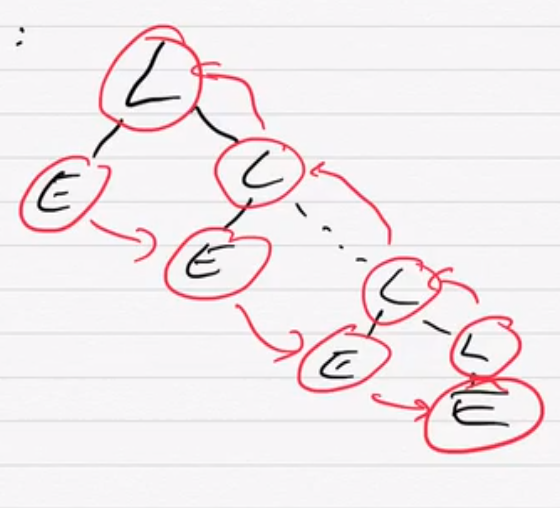 :
L
E L
E L
E L
E